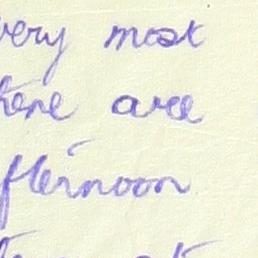 very most
here are
fternoon